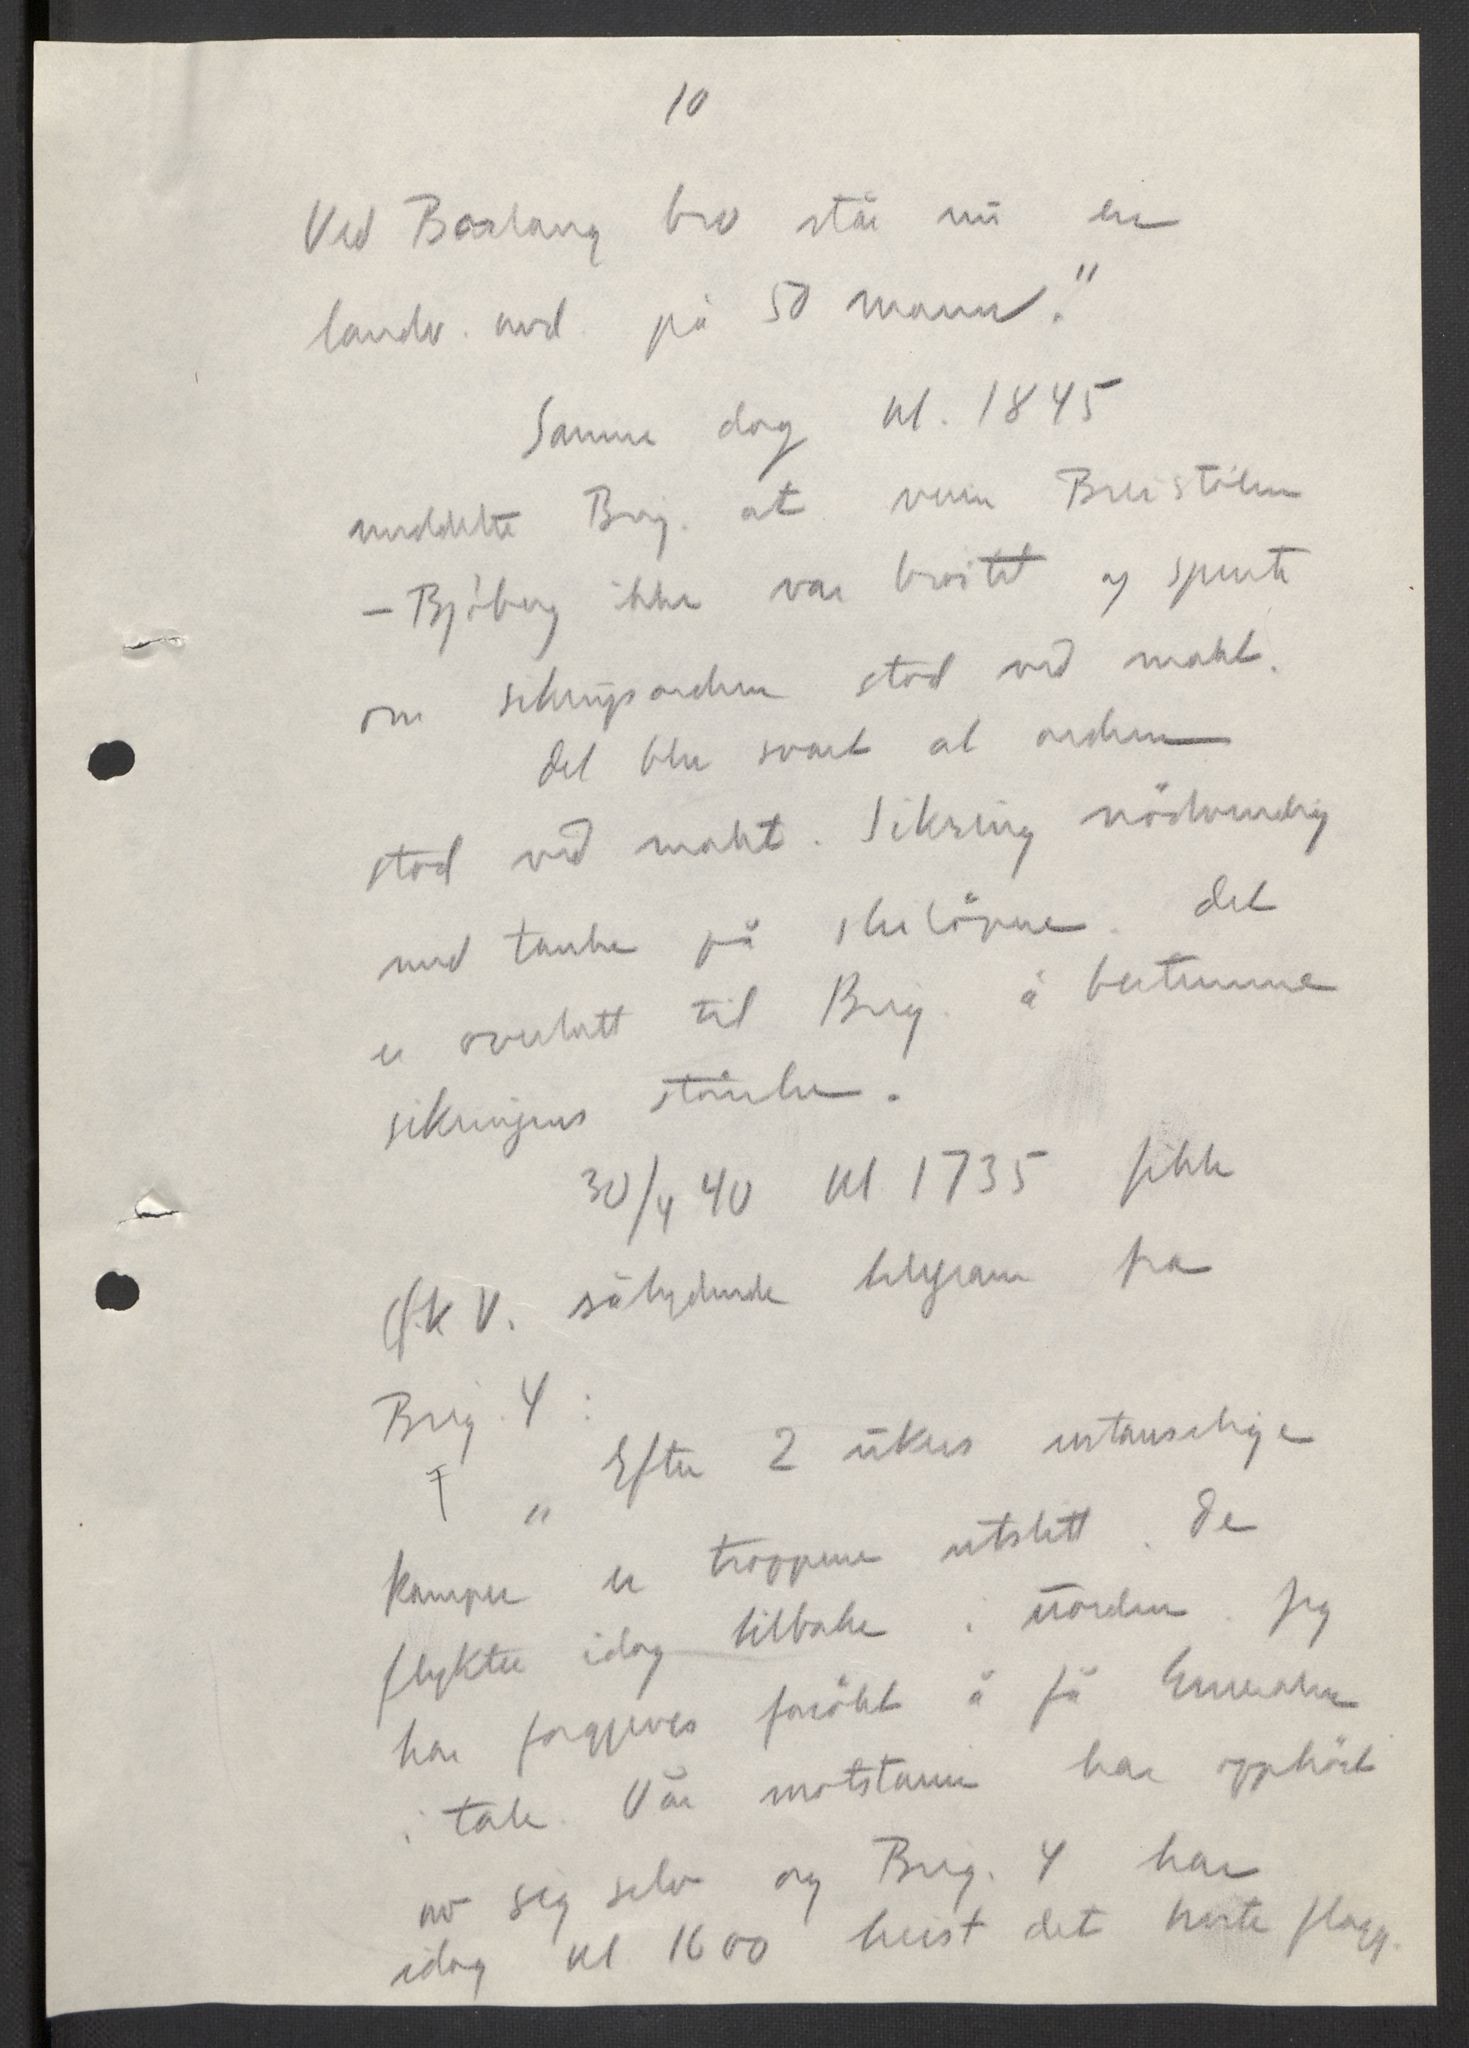 10
Ved Borlaug bro står nu en
landv. avd. på 50 mann."
Samme dag kl. 1845
meddelte Brig. at veien Breistölen
- Bjöberg ikke var bröitet og spurte
om sikringsordren stod ved makt.
Det blev svart at ordren
stod ved makt. Sikring nödvendig
med tanke på skilöpere. Det
er overlatt til Brig. å bestemme
sikringens störrelse.
30/4 40 kl 1735 fikk
D.K.V. sålydende telegram fra
Brig. 4:
" Efter 2 ukers uutanselige
kamper er troppene utslitt. De
flykter idag tilbake i uorden. Jeg
har forgjeves forsökt å få Generalen
i tale. Vår motstand har opphört
av sig selv og Brig. 4 har
idag kl 1600 heist det hvite flagg.